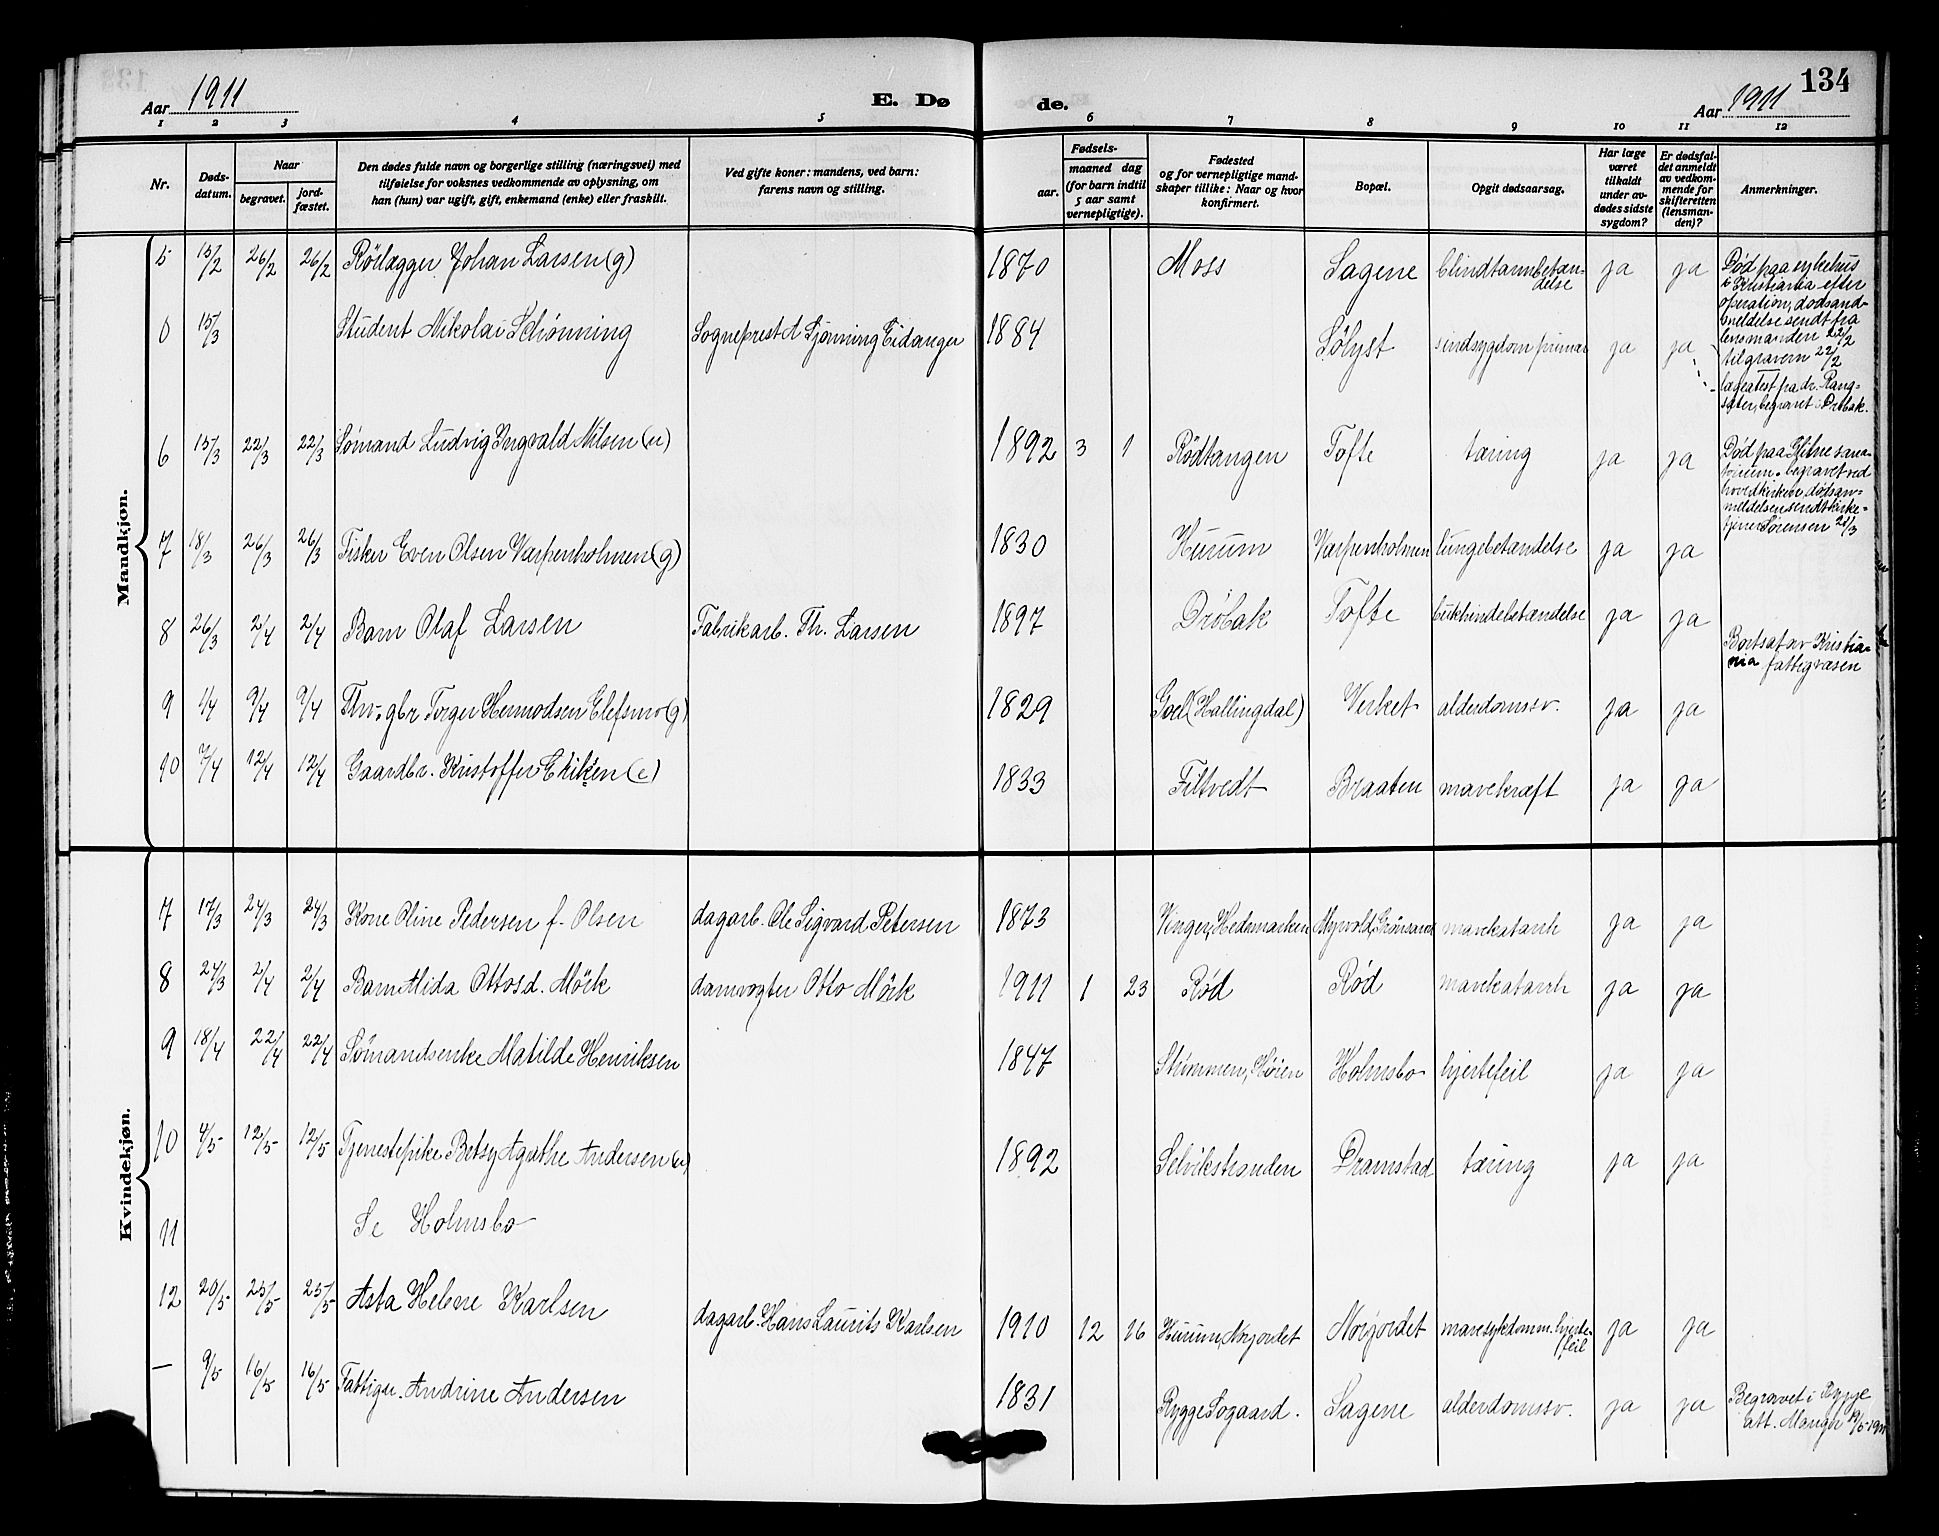 Aar 1911
E. Dø
de.
Aar 1911
134
1 2 3 4 5 6 7 8 9 10 11 12
Nr.
Døds-
datum.
Naar
begravet.
jord-
fæstet.
Den dødes fulde navn og borgerlige stilling (næringsvei) med
tilføielse for voksnes vedkommende av oplysning, om
han (hun) var ugift, gift, enkemand (enke) eller fraskilt.
Ved gifte koner: mandens, ved barn:
farens navn og stilling.
Fødsels-
aar.
maaned dag
(for barn indtil
5 aar samt
vernepligtige).
Fødested
og for vernepligtige mand-
skaper tillike: Naar og hvor
konfirmert.
Bopæl.
Opgit dødsaarsag.
Har læge
været
tilkaldt
under av-
dødes sidste
sygdom?
Er dødsfal-
det anmeldt
av vedkom-
mende for
skifteretten
(lensman-
den)?
Anmerkninger.
Mandkjøn.
5 15/2 26/2 26/2 Rörlægger Johan Larsen (g) 1870 Moss Sagene blindtarmbetæn-
delse ja ja
Død paa sykehus
i Kristiania efter
operation, dødsand-
meldelse sendt fra
lensmanden 22/2
til gravern 22/2
0 15/3 Student Nikolai Schønning Sogneprest A Sjönning Eidanger 1884 Sölyst sindsygdom primær ja ja
lægeatest fra dr. Rang-
sæter, begravet i Drøbak.
6 15/3 22/3 22/3 Sömand Ludvig Ingvald Nilsen (u) 1892 3 1 Rödtangen Tofte tæring ja ja
Død paa Glitne sana-
torium. begravet ved
hovedkirken, dødsan-
meldelsen sendt kirke-
tjener Sørensen 21/3
7 18/3 26/3 26/3 Fisker Even Olsen Varpenholmen (g) 1830 Hurum Varpenholmen lungebetændelse ja ja
8 26/3 2/4 2/4 Barn Olaf Larsen Fabrikarb. Th. Larsen 1897 Dröbak Tofte bukhindebetændelse ja ja
Bortsat av Kristia-
nia fattigvæsen
9 1/4 9/4 9/4 Fhv. gbr Torger Hermodsen Elefsmo (g) 1829 Goel (Hallingdal) Verket alderdomssv. ja ja
10 7/4 12/4 12/4 Gaardbr. Kristoffer Ekiken (e) 1833 Filtvedt Braaten mavekræft ja ja
Kvindekjøn.
7 17/3 24/3 24/3 Kone Oline Pedersen f. Olsen dagarb. Ole Sigvard Petersen 1873 Vinger, Hedemarken Myrvold, Grönsand mavekatarrh ja ja
8 24/3 2/4 2/4 Barn Alida Ottosd. Mörk damvogter Otto Mörk 1911 1 23 Rød Rød mavekatarrh ja ja
9 18/4 22/4 22/4 Sömandsenke Matilde Henriksen 1847 Strömmen, Höien Holmsbo hjertefeil ja ja
10 4/5 12/5 12/5 Tjenestepike Betsy Agathe Andersen (u) 1892 Selvikstranden Dramstad tæring ja ja
11 Se Holmsbo
12 20/5 25/5 25/5 Asta Helene Karlsen dagarb. Hans Laurits Karlsen 1910 12 16 Hurum, Norjordet Norjordet mavesykdomm. hjerte-
feil ja ja
— 9/5 16/5 16/5 Fattigu. Andrine Andersen 1831 Rygge Sogaard. Sagene alderdomssv. ja ja
Begravet i Rygge
att. Mangr 19/5 1911